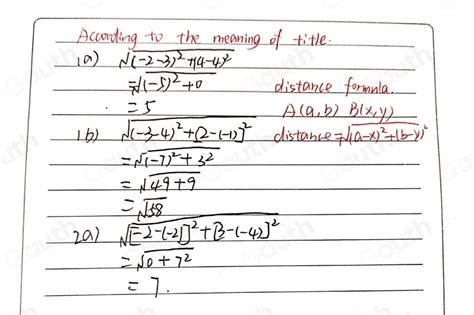 According to the meaning of title.
1a) √(-2-3)²+(4-4)²
=√(-5)²+0
distance formula.
= 5
A(a,b) B(x,y)
1b) √(-3-4)²+[2-(-1)]²
distance=√(a-x)²+(b-y)²
=√(-7)²+3²
=√49+9
=√58
2a) √[-2-(-2)]²+[3-(-4)]²
=√0+7²
= 7.